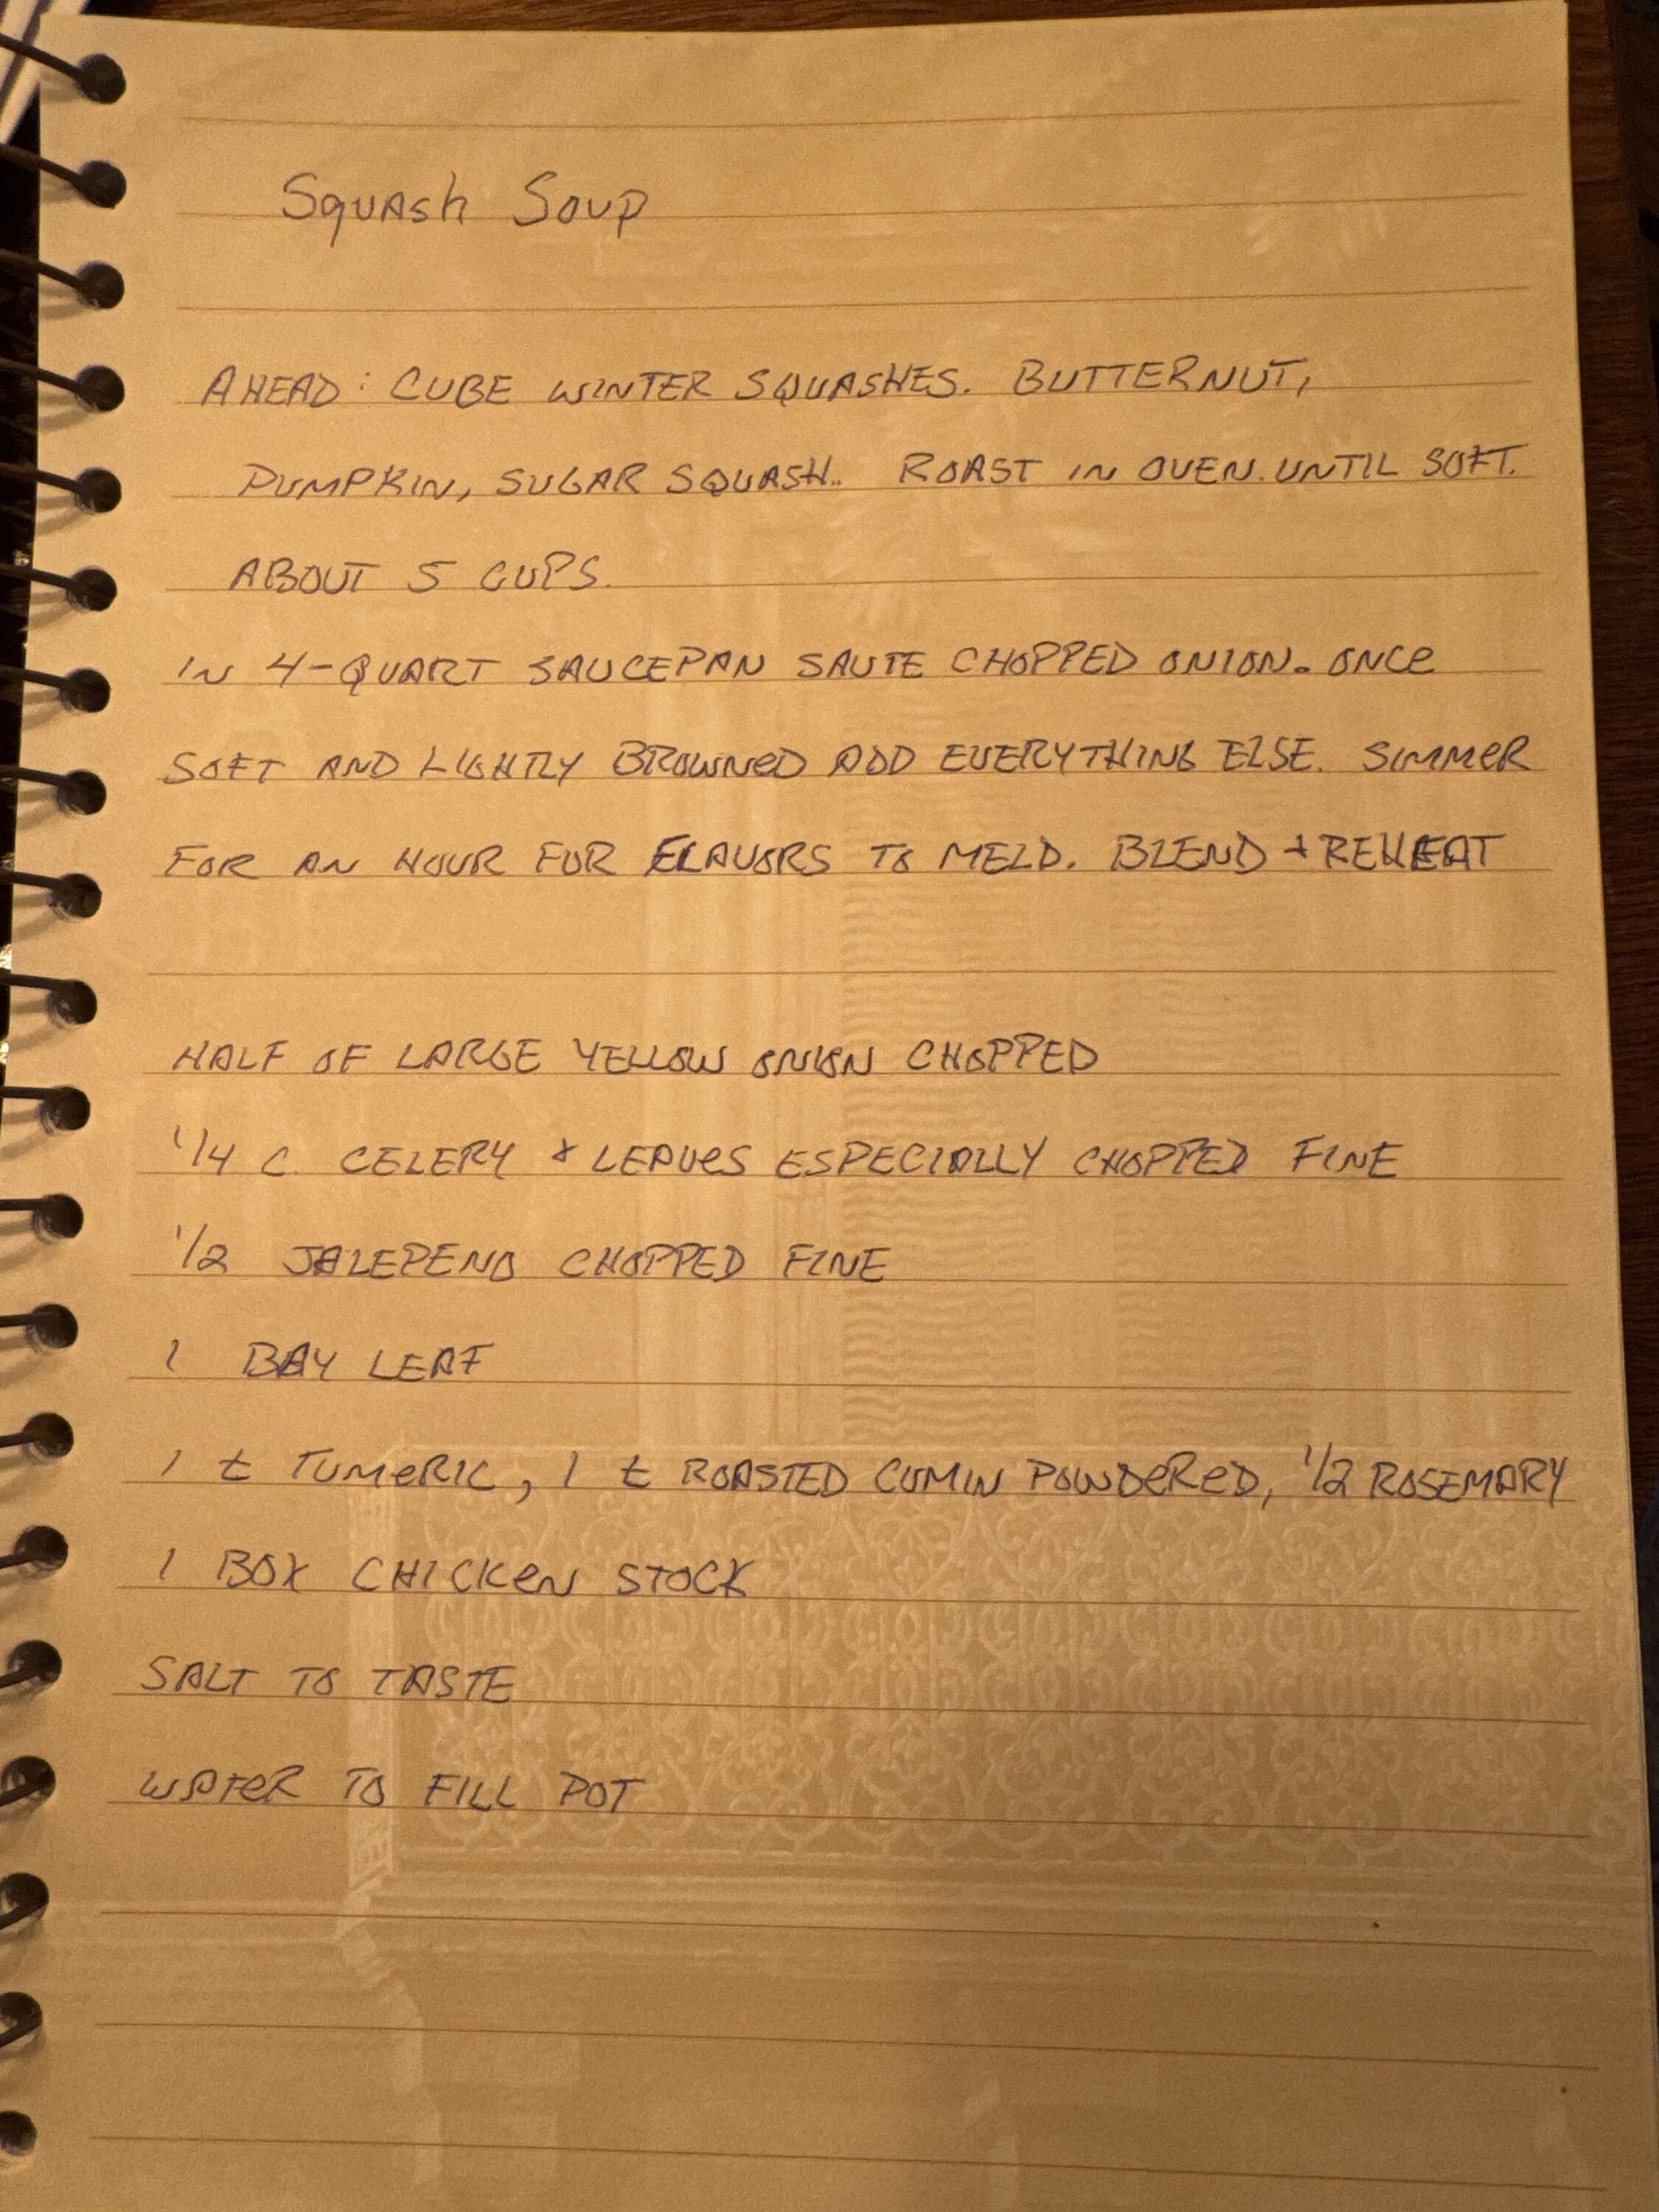 Squash Soup
AHEAD: CUBE WINTER SQUASHES. BUTTERNUT,
PUMPKIN, SUGAR SQUASH.. ROAST IN OVEN. UNTIL SOFT.
ABOUT 5 CUPS.
IN 4-QUART SAUCEPAN SAUTE CHOPPED ONION. ONCE
SOFT AND LIGHTLY BROWNED ADD EVERYTHING ELSE. SIMMER
FOR AN HOUR FOR FLAVORS TO MELD. BLEND + REHEAT
HALF OF LARGE YELLOW ONION CHOPPED
1/4 C. CELERY & LEAVES ESPECIALLY CHOPPED FINE
1/2 JALEPENO CHOPPED FINE
1 BAY LEAF
1 t TUMERIC, 1 t ROASTED CUMIN POWDERED, 1/2 ROSEMARY
1 BOX CHICKEN STOCK
SALT TO TASTE
WATER TO FILL POT